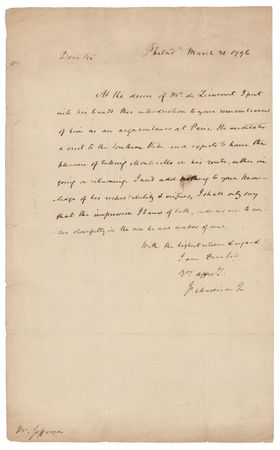 Dear Sir Philada March 28. 1796
At the desire of Mr. de Liancourt I put
into his hands this introduction to your remembrance
of him as an acquaintance at Paris. He meditates
a visit to the Southern States and expects to have the
pleasure of taking Monticello in his route, either in
going or returning. I need add nothing to your know-
ledge of his respectability &
I shall only say
that the impression I have of both, induces me to
cheerfully in the use he now makes of me.
With the highest esteem & regard
I am Dear Sir
Yrs. affecly.
Js. Madison Jr
Mr. Jefferson